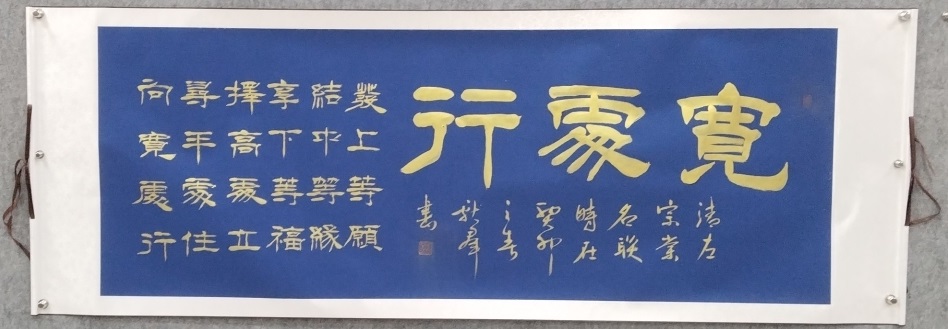 寬處行
清左
宗棠
名联
時在
癸卯
之春
群
書
發上等願
結中等緣
享下等福
擇高處立
尋平處住
向寬處行